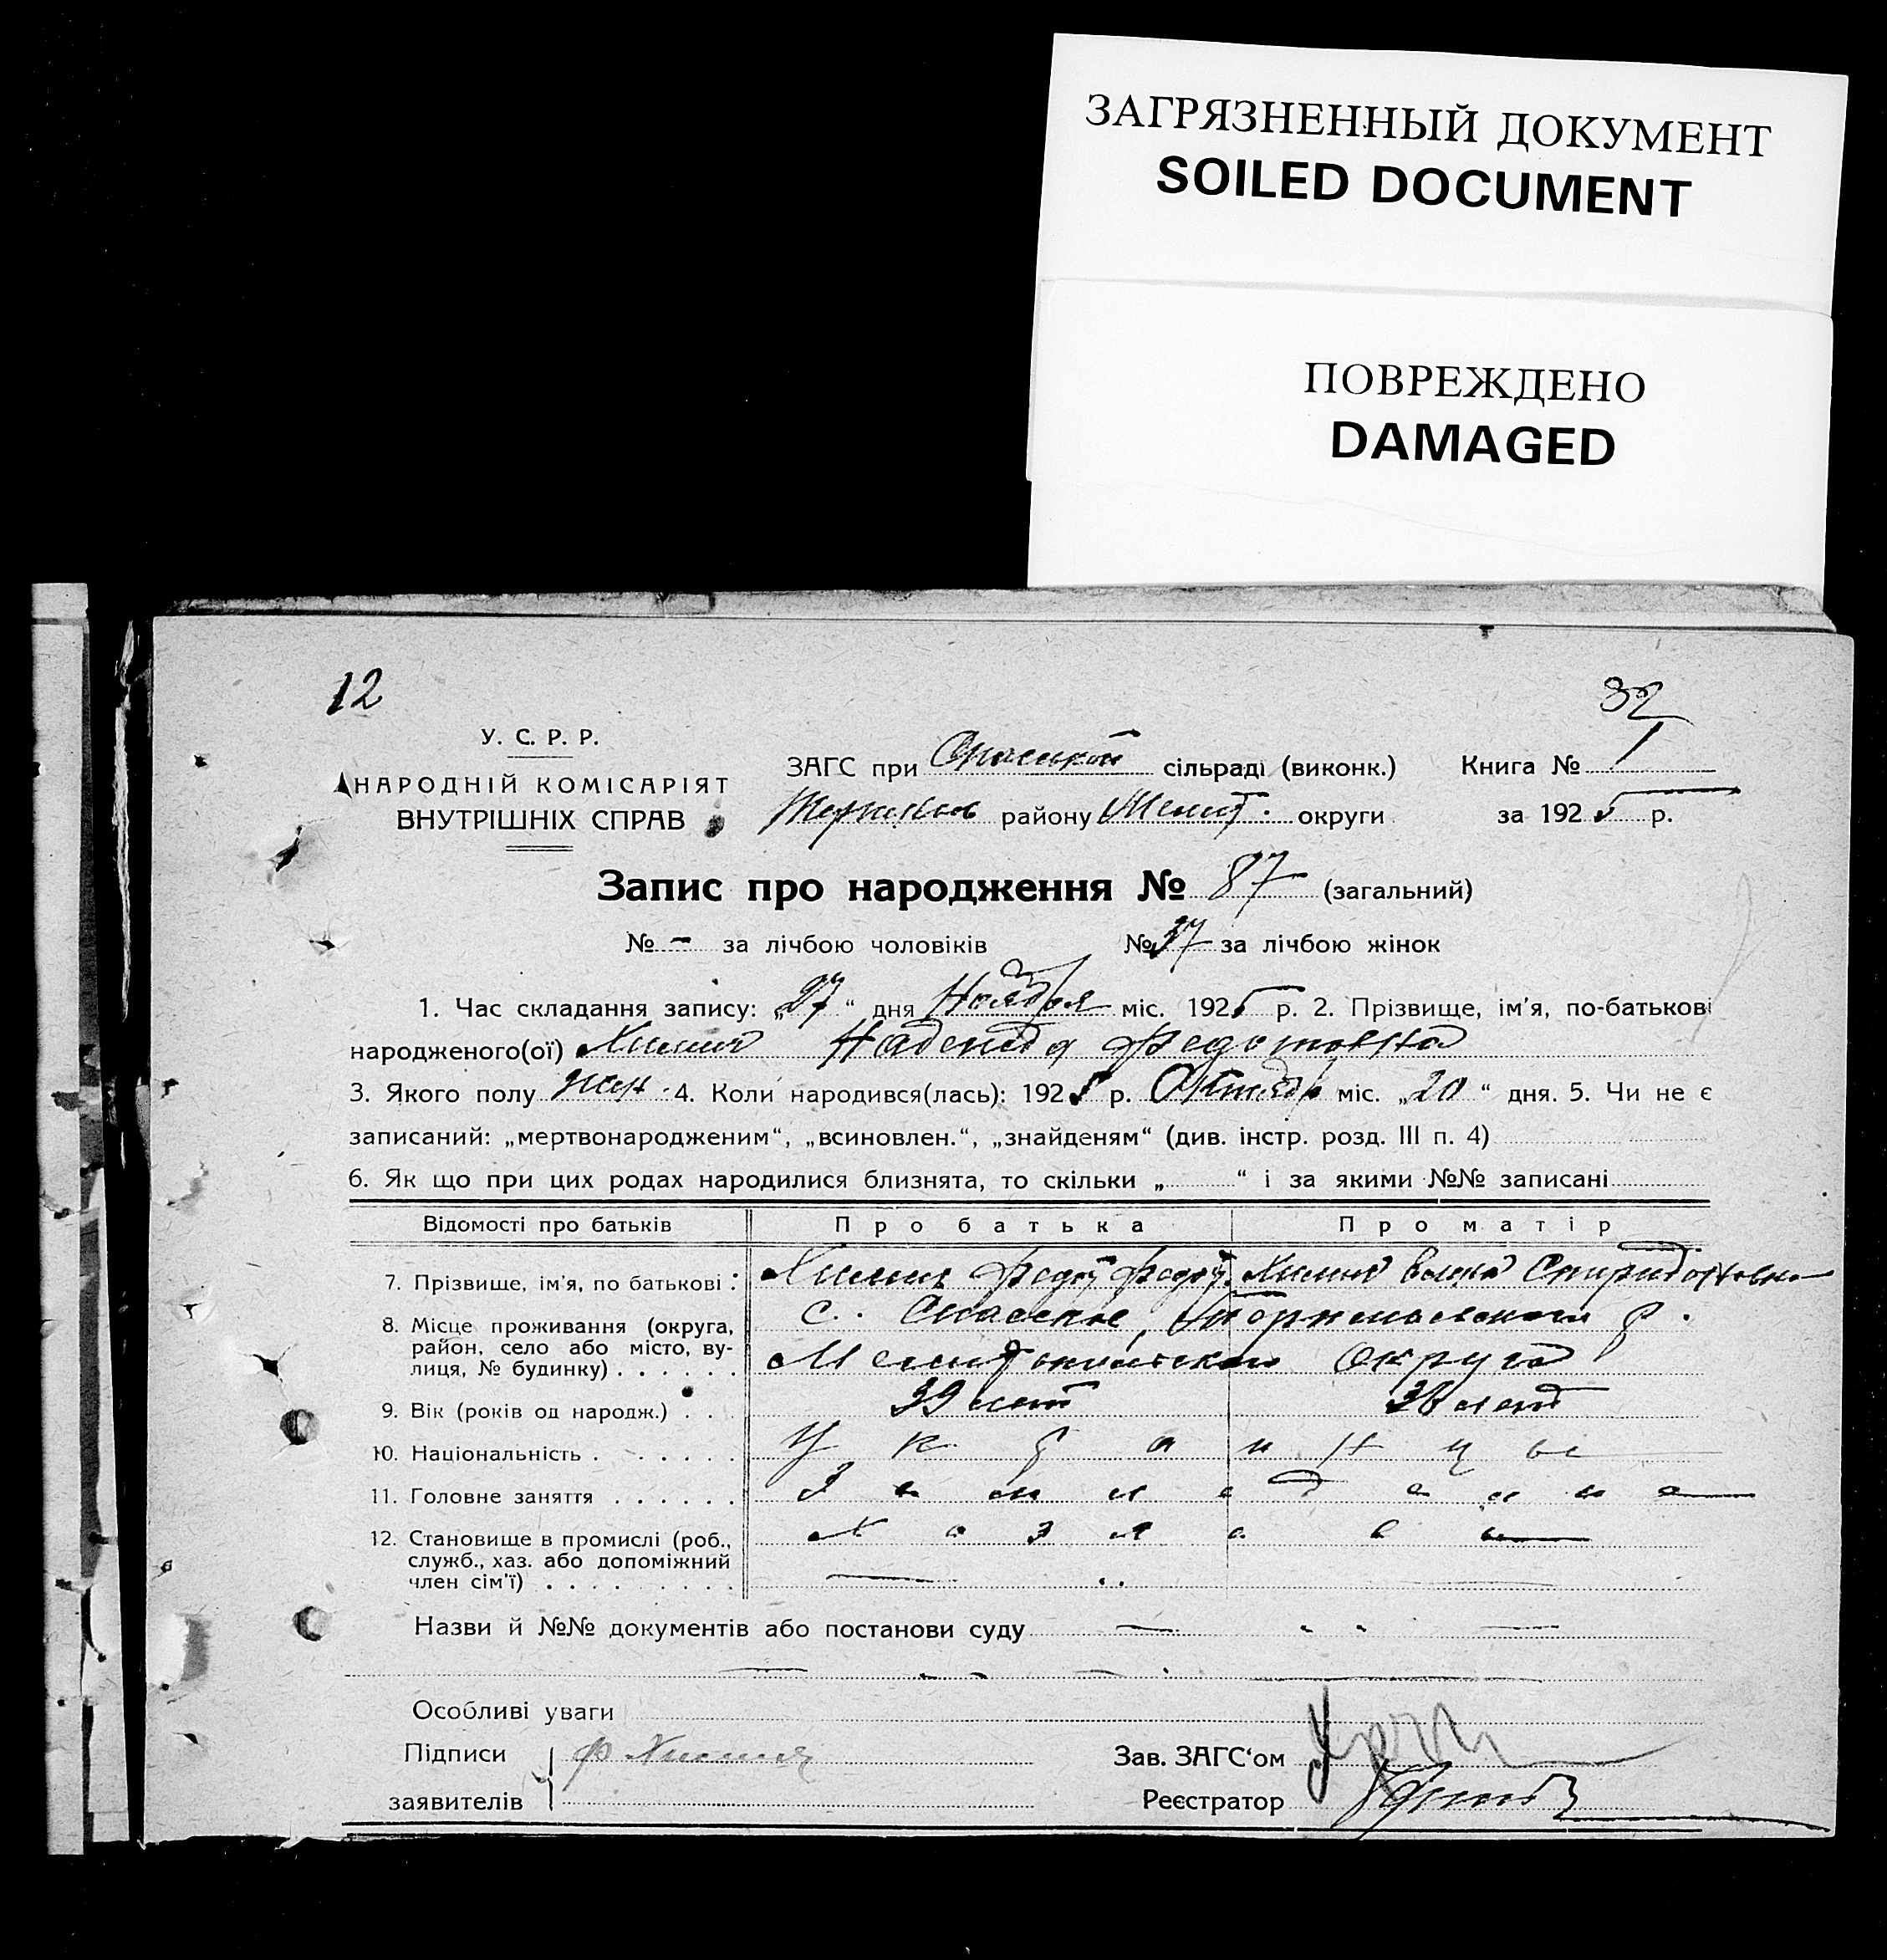 ЗАГРЯЗНЕННЫЙ ДОКУМЕНТ
SOILED DOCUMENT
ПОВРЕЖДЕНО
DAMAGED
12
32
У. С. Р. Р.
НАРОДНІЙ КОМІСАРІЯТ
ВНУТРІШНІХ СПРАВ
ЗАГС при сільраді (виконк.) Книга № 1
району Мелит. округи за 1925 р.
Запис про народження № 87 (загальний)
№ - за лічбою чоловіків № 37 за лічбою жінок
1. Час складання запису: „27“ дня Ноября міс. 1925 р. 2. Прізвище, ім'я, по-батькові
народженого(ої) Надежда Федотовна
3. Якого полу жен. 4. Коли народився(лась): 1925 р. Октября міс. „20“ дня. 5. Чи не є
записаний: „мертвонародженим“, „всиновлен.“, „знайденям“ (див. інстр. розд. III п. 4)
6. Як що при цих родах народилися близнята, то скільки „ “ і за якими №№ записані
Відомості про батьків Про батька Про матір
7. Прізвище, ім'я, по батькові : Федот Федот. Спиридоновна
8. Місце проживання (округа, с. Спасское, р.
район, село або місто, ву-
лиця, № будинку) . . . . . . Мелитопольского Округа
9. Вік (років од народж.) . . . 39 лет 38 лет
10. Національність . . . . . . Украинцы
11. Головне заняття . . . . . . Земледелие
12. Становище в промислі (роб., Хозяева
служб., хаз. або допоміжний
член сім'ї) . . . . . . . . .
Назви й №№ документів або постанови суду
Особливі уваги
Підписи
Зав. ЗАГС'ом
заявителів
Реєстратор